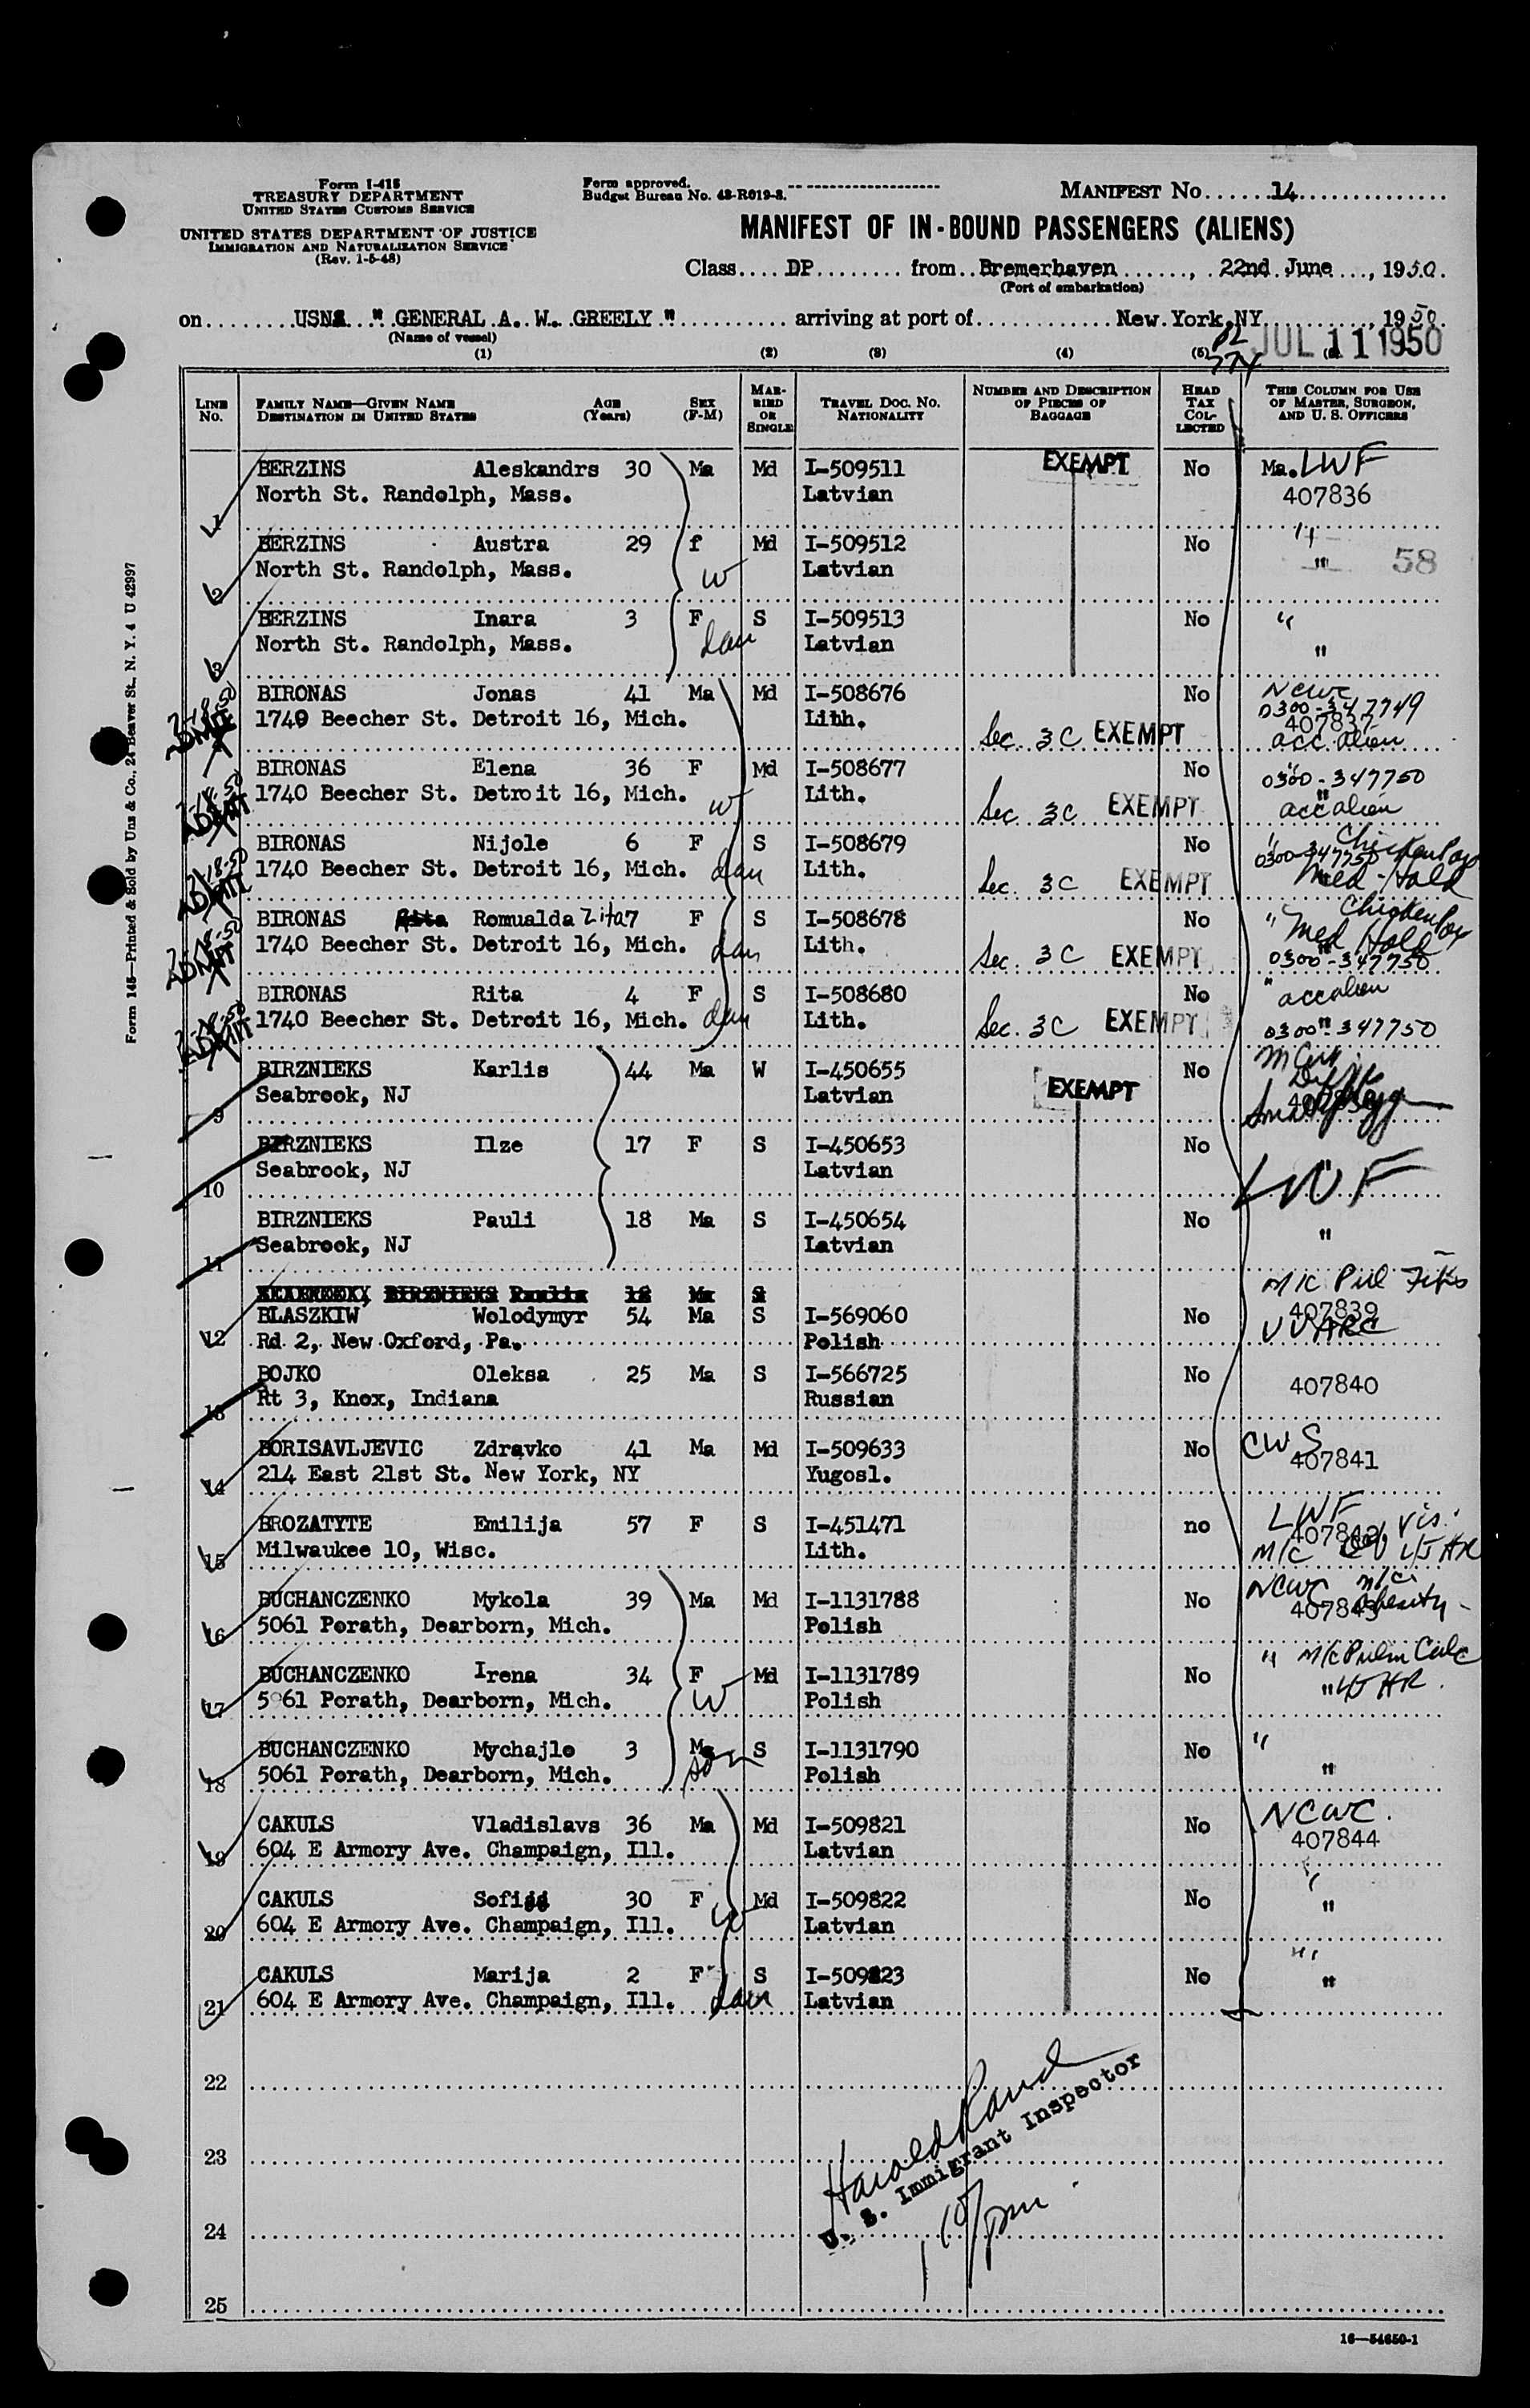 Form I-415
TREASURY DEPARTMENT
UNITED STATES CUSTOMS SERVICE
UNITED STATES DEPARTMENT OF JUSTICE
IMMIGRATION AND NATURALIZATION SERVICE
(Rev. 1-5-48)
Form approved.
Budget Bureau No. 43-R019-3.
MANIFEST No. 14
MANIFEST OF IN-BOUND PASSENGERS (ALIENS)
Class DP from Bremerhaven, 22nd June, 1950.
(Port of embarkation)
on USNS "GENERAL A. W. GREELY" arriving at port of New York, NY 1950.
(Name of vessel)
JUL 11 1950
(1) (2) (3) (4) (5)
LINE No. FAMILY NAME—GIVEN NAME DESTINATION IN UNITED STATES AGE (Years) SEX (F-M) MARRIED OR SINGLE TRAVEL DOC. NO. NATIONALITY NUMBER AND DESCRIPTION OF PIECES OF BAGGAGE HEAD TAX COLLECTED THIS COLUMN FOR USE OF MASTER, SURGEON, AND U. S. OFFICERS
1 BERZINS Aleskandrs 30 Ma Md I-509511 EXEMPT No Ma. LWF
North St. Randolph, Mass. Latvian 407836
2 BERZINS Austra 29 f Md I-509512 No "
North St. Randolph, Mass. W Latvian " 58
3 BERZINS Inara 3 F S I-509513 No "
North St. Randolph, Mass. dau Latvian "
BIRONAS Jonas 41 Ma Md I-508676 No NCWC
0300-347749
1740 Beecher St. Detroit 16, Mich. Lith. Sec. 3C EXEMPT 407837
ADMIT acc. alien
BIRONAS Elena 36 F Md I-508677 No 0300-347750
1740 Beecher St. Detroit 16, Mich. W Lith. Sec. 3C EXEMPT " acc alien
ADMIT
BIRONAS Nijole 6 F S I-508679 No " Chicken Pox
0300-347750
1740 Beecher St. Detroit 16, Mich. dau Lith. Sec. 3C EXEMPT Med-Hold
ADMIT
BIRONAS Rita Romualda Zita 7 F S I-508678 No " Chicken Pox
Med Hold
1740 Beecher St. Detroit 16, Mich. dau Lith. Sec. 3C EXEMPT 0300-347750
ADMIT
BIRONAS Rita 4 F S I-508680 No " acc alien
1740 Beecher St. Detroit 16, Mich. dau Lith. Sec. 3C EXEMPT 0300-347750
ADMIT
9 BIRZNIEKS Karlis 44 Ma W I-450655 EXEMPT No
Seabrook, NJ Latvian
10 BIRZNIEKS Ilze 17 F S I-450653 No
Seabrook, NJ Latvian " LWF
11 BIRZNIEKS Pauli 18 Ma S I-450654 No
Seabrook, NJ Latvian "
BIRZNIEKS Paulis 18 Ma S
12 BLASZKIW Wolodymyr 54 Ma S I-569060 No M/C Pul 407839
Rd 2, New Oxford, Pa. Polish
13 BOJKO Oleksa 25 Ma S I-566725 No 407840
Rt 3, Knox, Indiana Russian
14 BORISAVLJEVIC Zdravko 41 Ma Md I-509633 No CWS
214 East 21st St. New York, NY Yugosl. 407841
15 BROZATYTE Emilija 57 F S I-451471 no LWF
Milwaukee 10, Wisc. Lith. M/C vis.
16 BUCHANCZENKO Mykola 39 Ma Md I-1131788 No NCWC M/C
5061 Porath, Dearborn, Mich. Polish 407843 Obesity
17 BUCHANCZENKO Irena 34 F Md I-1131789 No " M/C Pulm Calc
5061 Porath, Dearborn, Mich. W Polish "
18 BUCHANCZENKO Mychajlo 3 Ma S I-1131790 No "
5061 Porath, Dearborn, Mich. son Polish "
19 CAKULS Vladislavs 36 Ma Md I-509821 No NCWC.
604 E Armory Ave. Champaign, Ill. Latvian 407844
20 CAKULS Sofija 30 F Md I-509822 No "
604 E Armory Ave. Champaign, Ill. W Latvian "
21 CAKULS Marija 2 F S I-509823 No "
604 E Armory Ave. Champaign, Ill. dau Latvian "
22
23
24
25
Harold Rand
U. S. Immigrant Inspector
Form 145—Printed & Sold by Unz & Co., 24 Beaver St., N. Y. 4 U 42997
16—54650-1